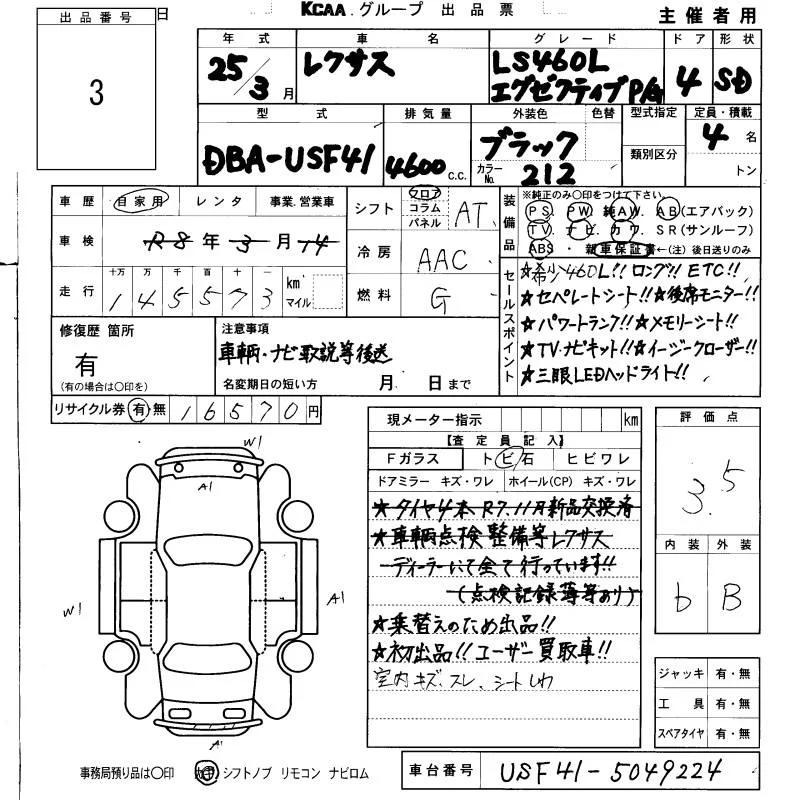 出品番号
日
3
KCAA.グループ 出品票
主催者用
年式
25/3月
車名
レクサス
グレード
LS460L
エグゼクティブP/G
ドア
4
形状
SD
型式
DBA-USF41
排気量
4600 c.c.
外装色
ブラック
カラーNo. 212
色替
型式指定
類別区分
定員・積載
4名
トン
車歴 自家用 レンタ 事業.営業車
車検 R8年3月14
走行 十万 万 千 百 十 一
145573 km マイル
シフト フロア コラム パネル AT
冷房 AAC
燃料 G
装備品
※純正のみ○印をつけて下さい
PS. PW. 純AW. AB(エアバック)
TV. ナビ. カワ. SR(サンルーフ)
ABS ・ 新車保証書←(注)後日送りのみ
セールスポイント
☆希少460L!! ロング!! ETC!!
★セパレートシート!!★後席モニター!!
★パワートランク!!★メモリーシート!!
★TV.ナビキット!!★イージークローザー!!
★三眼LEDヘッドライト!!
修復歴 箇所
有
(有の場合は○印を)
注意事項
車輌・ナビ取説等後送
名変期日の短い方 月 日まで
リサイクル券 有 無 16570円
現メーター指示 km
【査定員記入】
Fガラス トビ石 ヒビワレ
ドアミラー キズ・ワレ ホイール(CP) キズ・ワレ
★タイヤ4本 R7.11月新品交換済
★車輌点検整備等レクサス
ディーラーにて全て行っています!!
(点検記録簿等あり)
★乗替えのため出品!!
★初出品!! ユーザー買取車!!
室内キズ、スレ、シートしわ
評価点
3.5
内装 外装
b B
W1
A1
W1
A1
A1
ジャッキ 有・無
工具 有・無
スペアタイヤ 有・無
事務局預り品は○印 シフトノブ リモコン ナビロム
車台番号 USF41-5049224